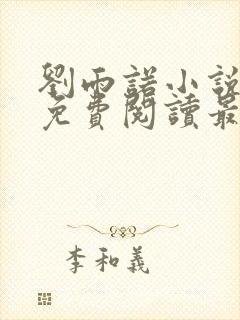 劉雨諾小說
免費閱讀最
李和義